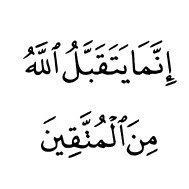 إِنَّمَا يَتَقَبَّلُ ٱللَّهُ
مِنَ ٱلْمُتَّقِينَ